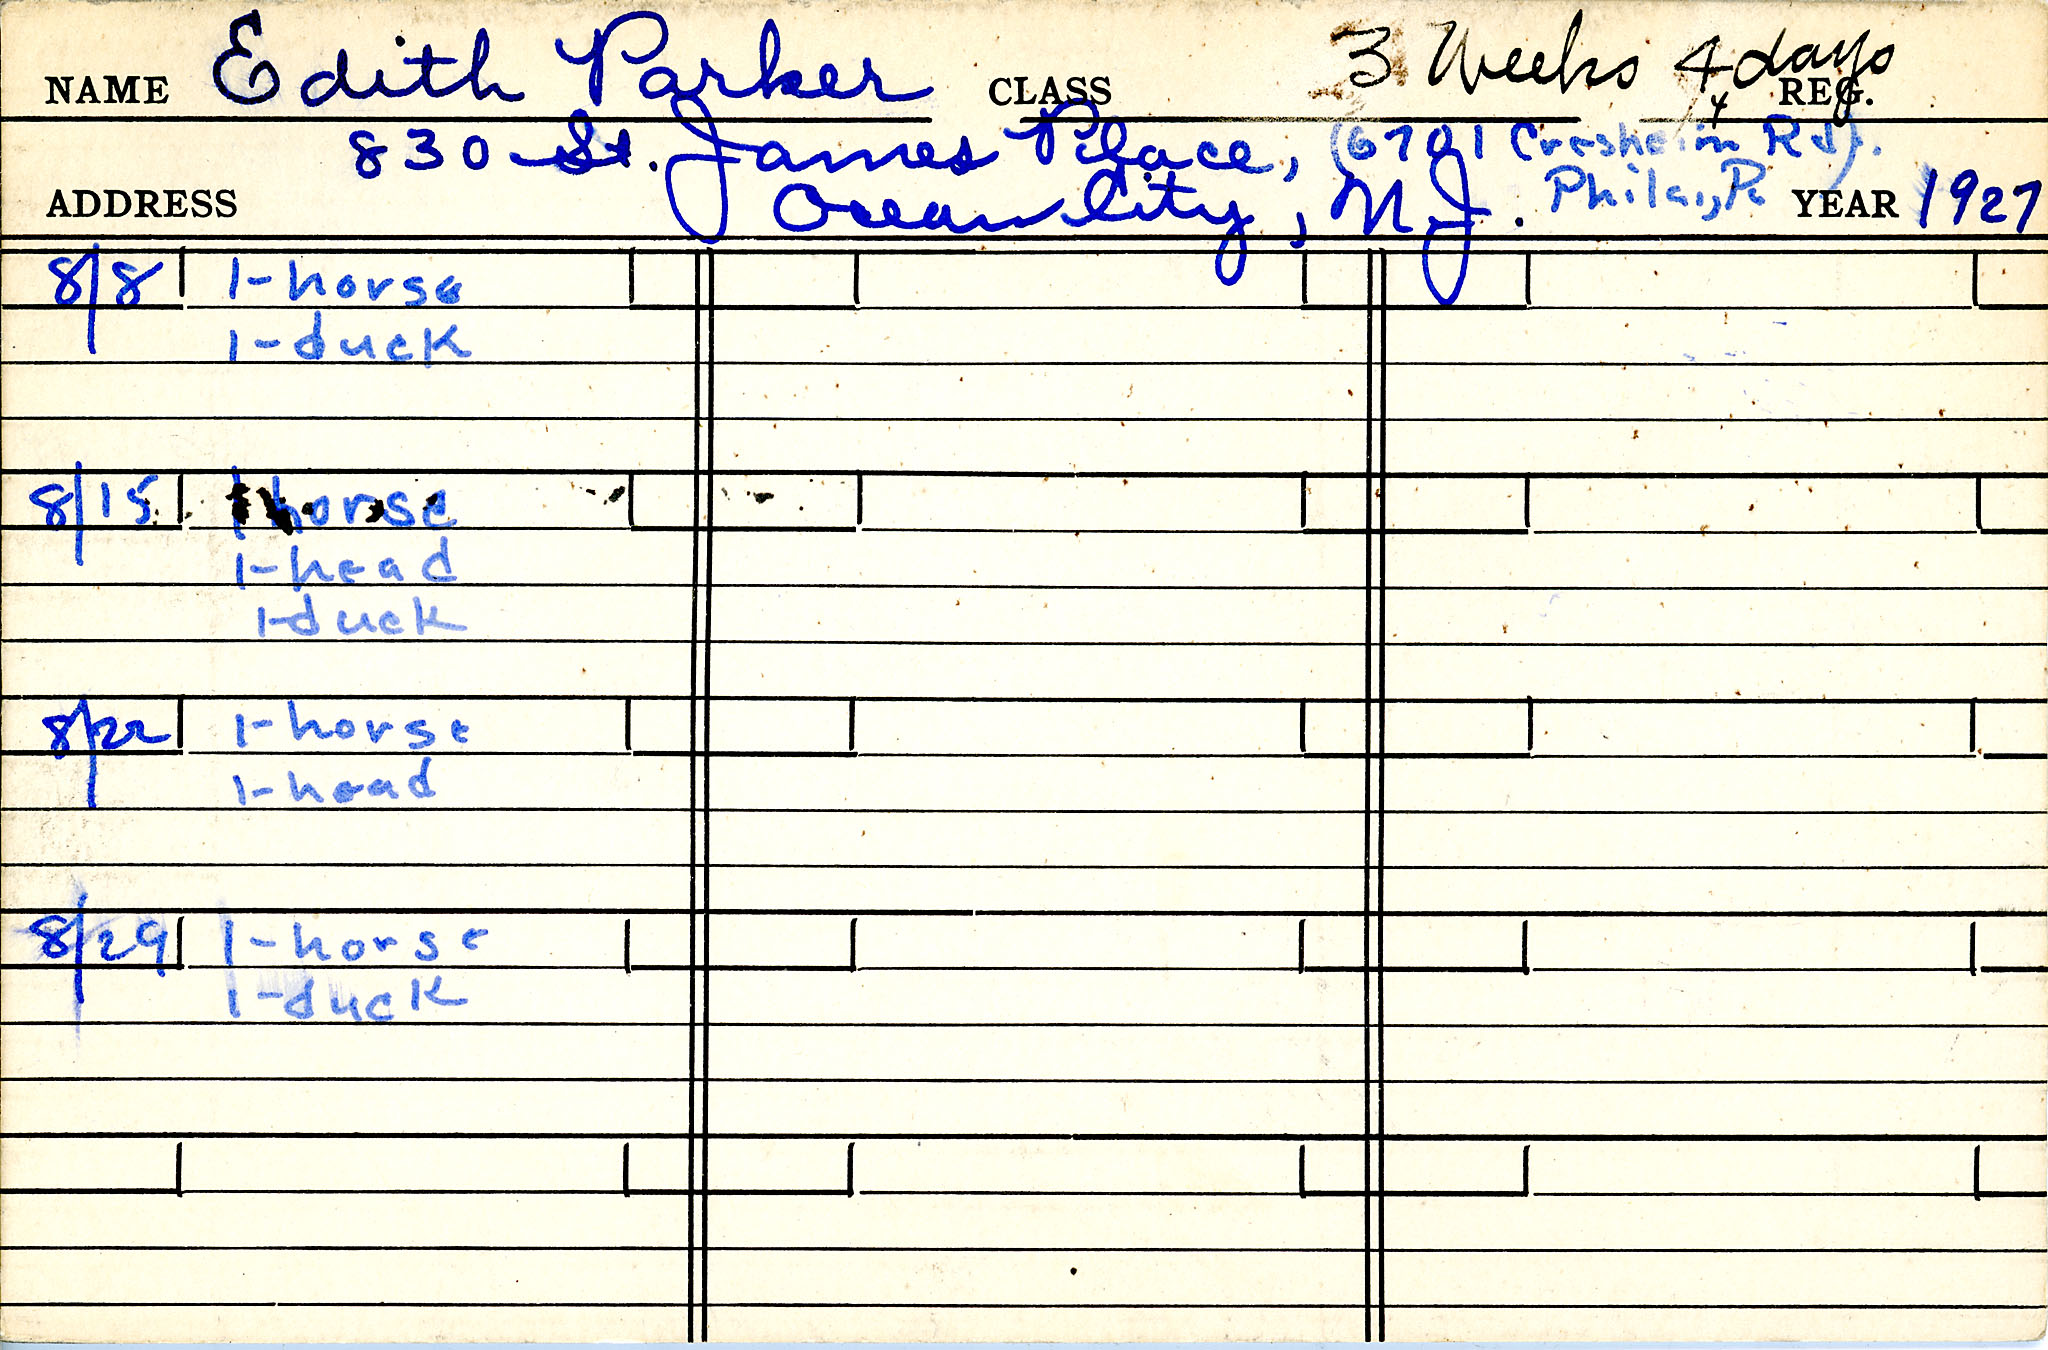 NAME Edith Parker CLASS 3 Weeks 4 days REG.
830 St. James Place, (6701 Cresheim Rd).
ADDRESS Ocean City, N.J. Phila., Pa YEAR 1927
8/8 1-horse
1-duck
8/15 1 horse
1-head
1-duck
8/22 1-horse
1-head
8/29 1-horse
1-duck